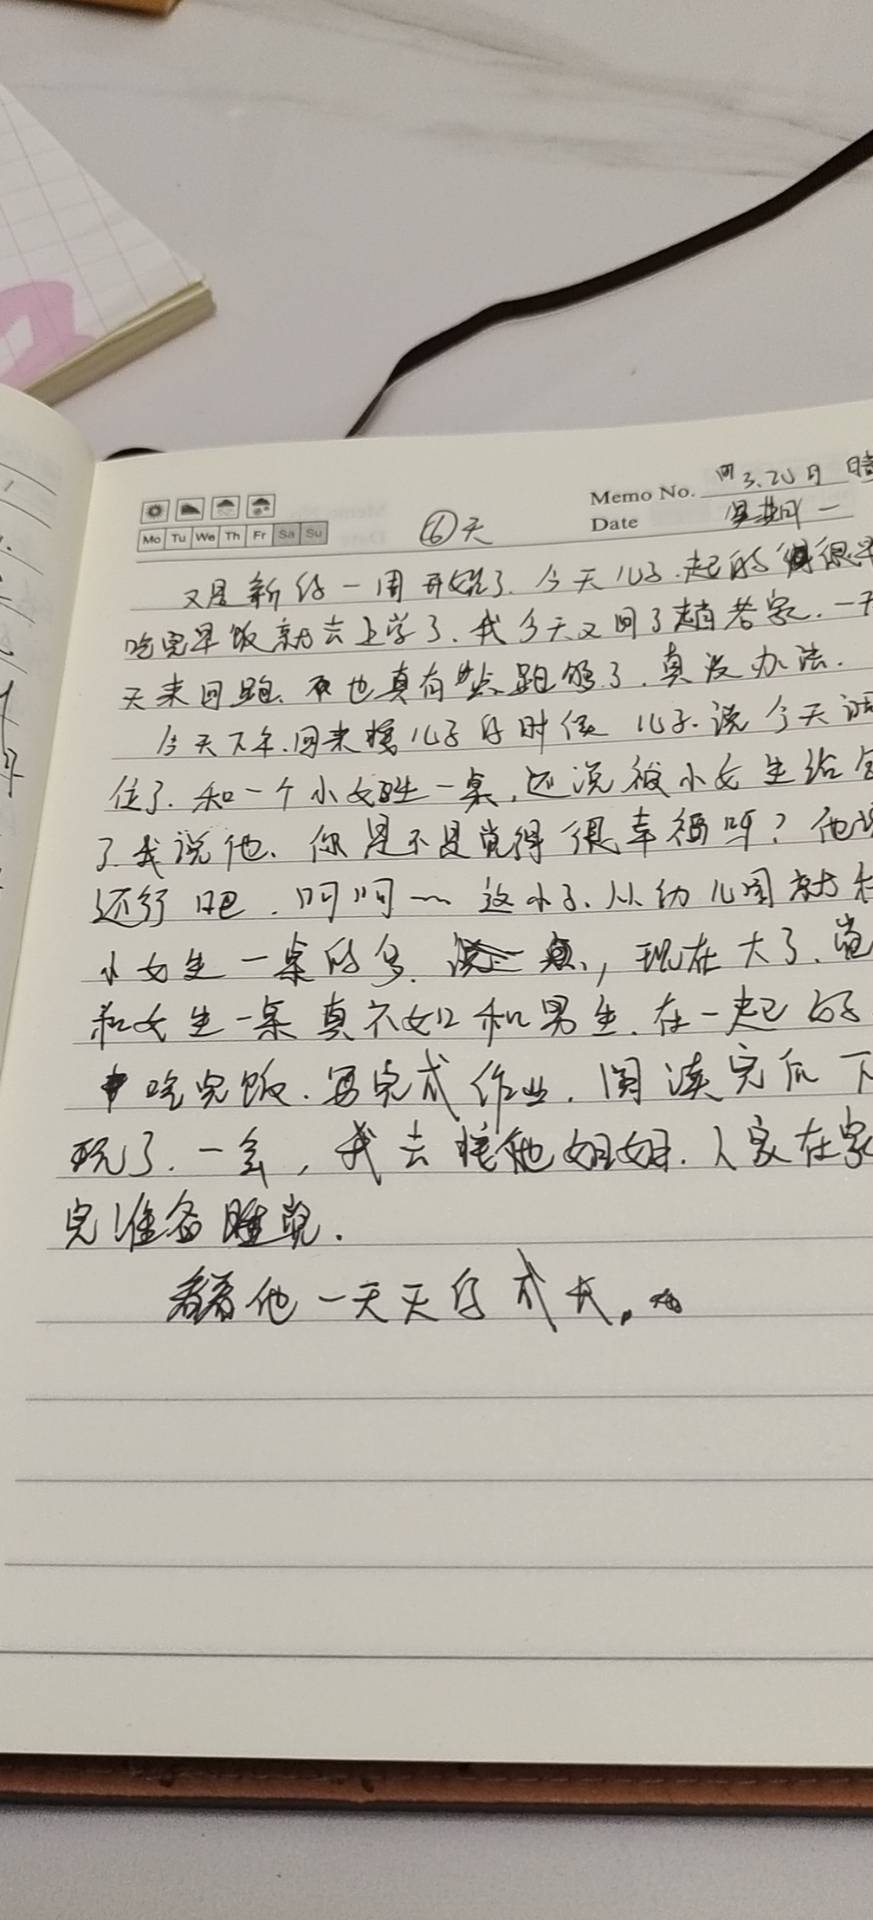 Memo No. 3.20日 晴
Mo Tu We Th Fr Sa Su
Date 星期一
⑥天
又是新的一周开始了.今天儿子.起的很早
吃完早饭就去上学了.我今天又回了趟老家.一天
天来回跑、也真有点跑够了.真没办法.
今天下午.回来接儿子的时候 儿子.说今天调
位了.和一个小女生一桌,还说被小女生给
了.我说他、你是不是觉得很幸福呀?他说
还行吧.呵呵~这小子、从幼儿园就和
小女生一桌的多.,现在大了、觉
和女生一桌真不如和男生.在一起的
吃完饭.写完成作业.阅读完后下
玩了.一会,我去接他姐姐.人家在家
完准备睡觉.
看着他一天天的成长.